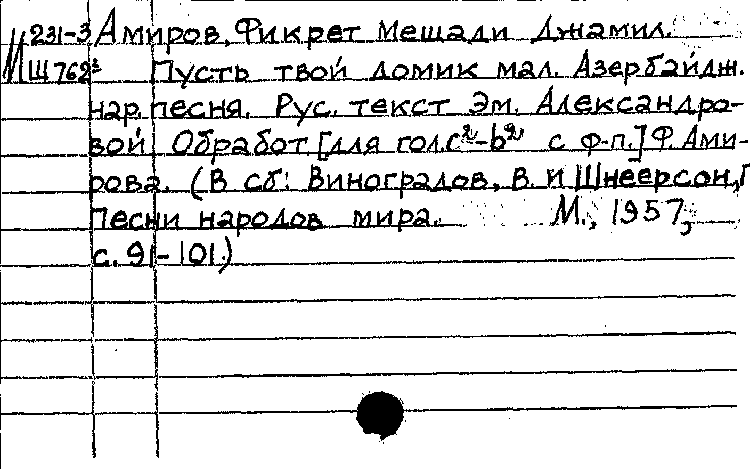 М 231-3 Амиров, Фикрет Мешади Джамил.
Ш 762³ Пусть твой домик мал. Азербайдж.
нар. песня. Рус. текст Эм. Александро-
вой Обработ [для гол. c²-b² с ф-п.] Ф. Ами-
рова. (В сб: Виноградов, В. и Шнеерсон, Г
Песни народов мира. М., 1957,
с. 91-101.)